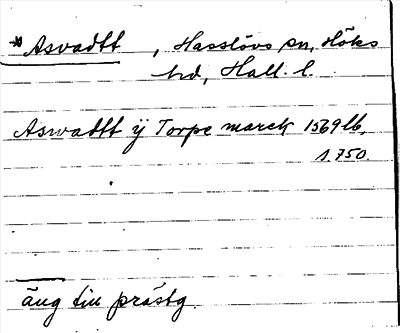 * Asvadtt, Hasslövs sn, Höks
hd, Hall. l.
Aswadtt ÿ Torpe marck 1569 lb,
s. 750.
äng till prästg.